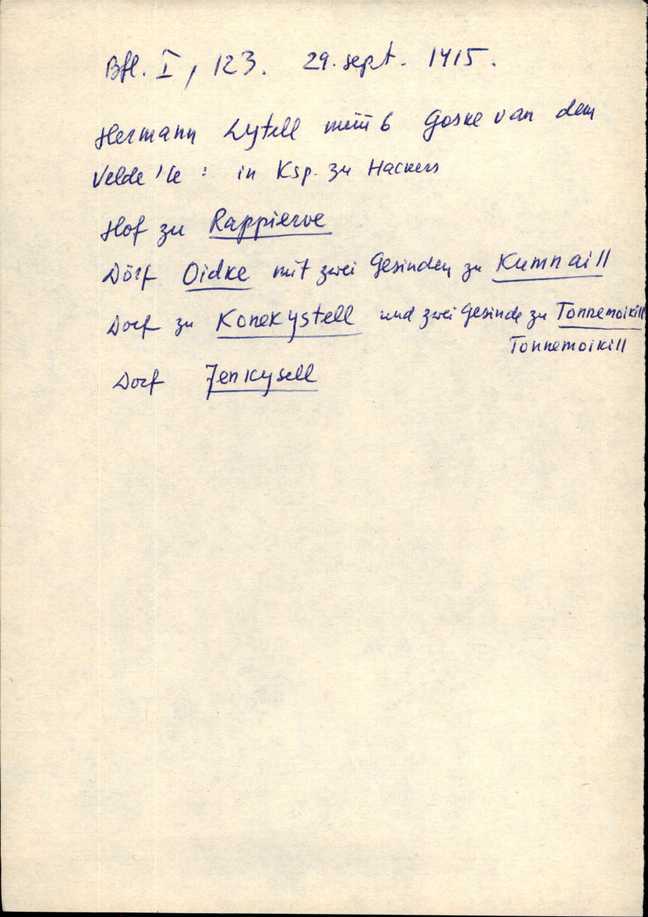 Bfl. I, 123. 29. sept. 1415.
Hermann Lytell müüb Goske van dem
Velde'le: in Ksp. zu Hackers
Hof zu Rappierve
Dörf Oidke mit zwei Gesinden zu Kumnaill
Dorf zu Konekystell und zwei Gesinde zu Tonnemoikill
Tonnemoikill
Dorf Jenkysell